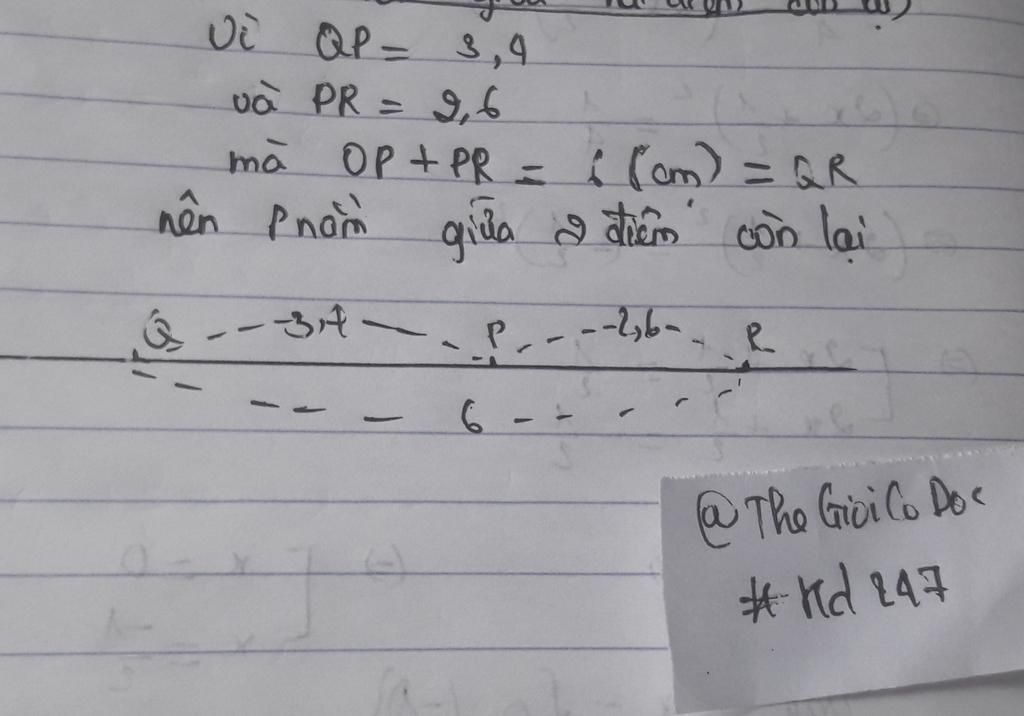 Vì QP = 3,4
và PR = 2,6
mà OP + PR = 6 (cm) = QR
nên P nằm giữa 2 điểm còn lại
Q 3,4 P 2,6 R
6
@TheGioiCoDoc
# Kd 247